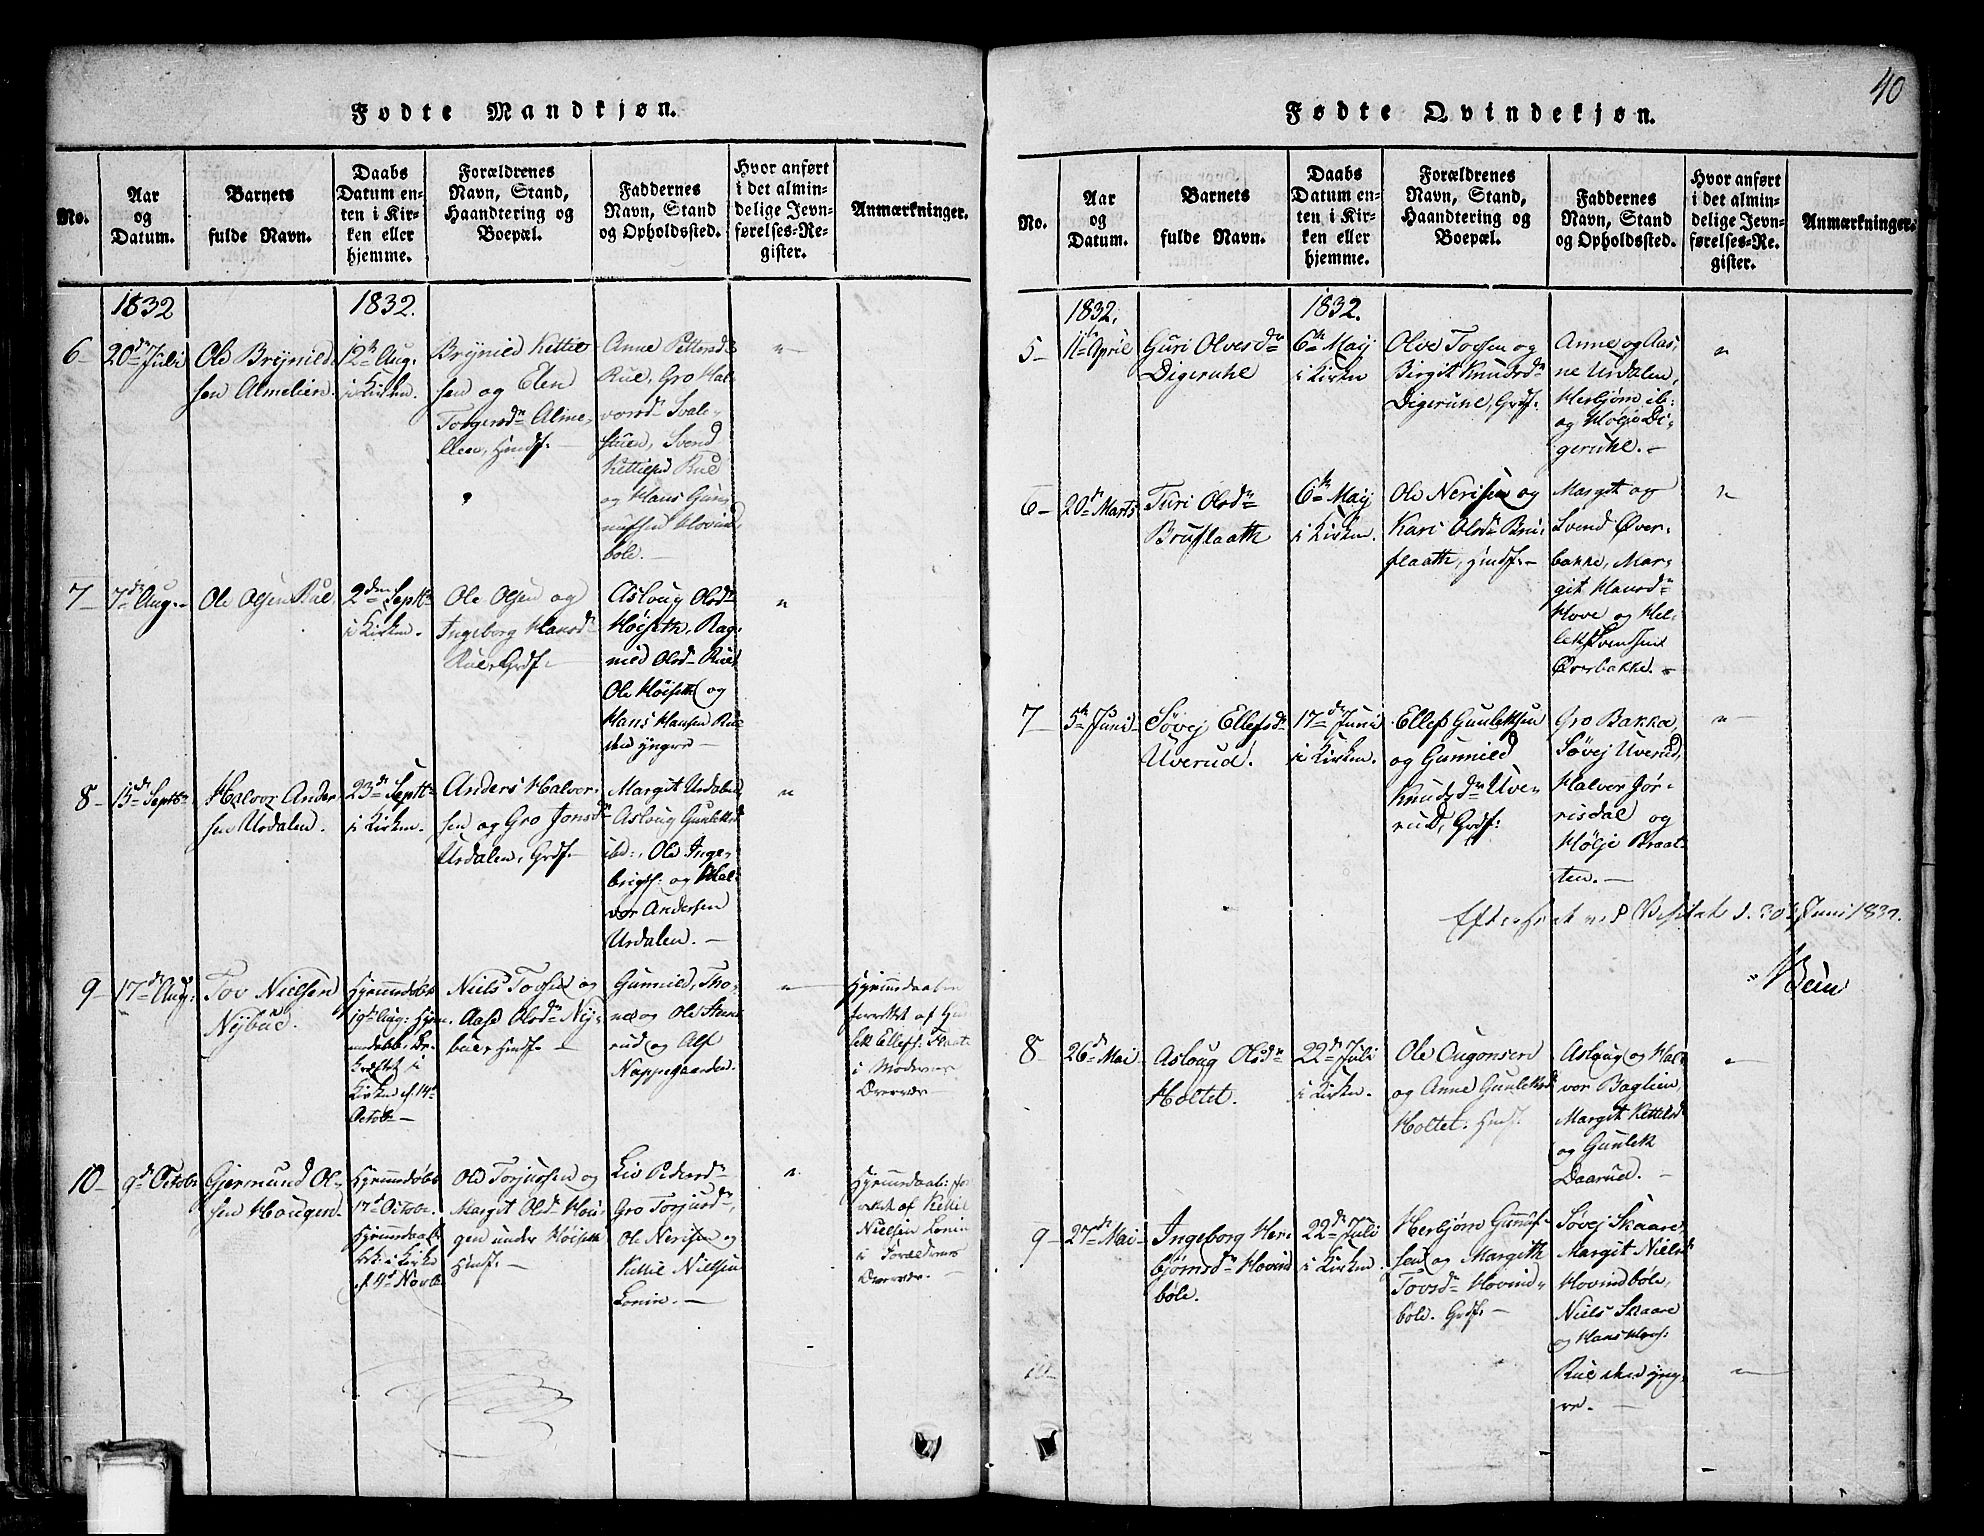 40
Fødte Mandkjøn.
No.
Aar
og
Datum.
Barnets
fulde Navn.
Daabs
Datum en-
ten i Kir-
ken eller
hjemme.
Forældrenes
Navn, Stand,
Haandtering og
Boepæl.
Faddernes
Navn, Stand
og Opholdssted.
Hvor anført
i det almin-
delige Jevn-
førelses-Re-
gister.
Anmærkninger.
1832
1832.
6
20de Juli
Ole Brynild
sen Almelien.
12te Aug.
i Kirken.
Brynild Kettel
sen og Elen
Torgersdr Alme
lien, Huusf:
Anne Pettersd
Rue, Gro Hal-
vorsdr Svale-
stuen, Svend
Kettilsen Rue
og Hans Gun-
nufsen Hovind
bøle.
"
7
7de Aug.
Ole Olsen Rue
2den Septbr
i Kirken.
Ole Olsen og
Ingeborg Hansdr
Rue, Grdf.
Asloug Olsdr
Høiseth, Rag-
nild Olsdr Rue,
Ole Høiseth og
Hans Hansen Rue
den yngre
"
8
15de Septbr
Halvor Ander
sen Urdalen.
23de Septbr
i Kirken.
Anders Halvor-
sen og Gro Jonsdr
Urdalen, Grdf.
Margit Urdalen
Asloug Gunleksd
ibd:, Ole Inge-
brigts: og Hal-
vor Andersen
Urdalen.
"
9
17de Aug:
Tov Nielsen
Nybue.
Hjemmedøbt
19de Aug: Hjem-
medøbt Be-
kræftet i
Kirken d. 14de
Octobr
Niels Tovsen og
Aase Olsdr Ny-
bue, Huusf.
Gunnild, Tho-
ne og Ole Steen
rud og Alf
Noppegaarden.
"
Hjemmedaaben
forrettet af Gun
lek Ellefs:
i Moderens
Overvær
10
9de Octobr
Gjermund Ol-
sen Haugen.
Hjemmedøbt
17de Octobr.
Hjemmedaab
i Kirke
d. 4de Novbr
Ole Torjussen og
Margit Olsdr Hou-
gen under Høiseth
Huusf.
Liv Pedersdr
Gro Torjusdr,
Ole Nerisen og
Kittil Nielsen
Lonin.
"
Hjemmedaab: for
rettet af Kittil
Nielsen Lonin
i Forældrenes
Overvær.
Fødte Qvindekjøn.
No.
Aar
og
Datum.
Barnets
fulde Navn.
Daabs
Datum en-
ten i Kir-
ken eller
hjemme.
Forældrenes
Navn, Stand,
Haandtering og
Boepæl.
Faddernes
Navn, Stand
og Opholdssted.
Hvor anført
i det almin-
delige Jevn-
førelses-Re-
gister.
Anmærkninger.
1832.
1832.
5
11te April
Guri Olvesdr
Digeruhe
6te Maij
i Kirken
Olve Tovsen og
Birgit Knudsdr
Digeruhe, Grdf.
Anne og Aas-
ne Urdalen,
Herbjørn ib:
og Høljo Di-
geruhe.
"
6
20de Marts
Turi Olsdr
Bruflaath
6te Maij
i Kirken.
Ole Nerisen og
Kari Olsdr Bru-
flaath, Huusf:
Margit og
Svend Øver-
bakke, Mar-
git Hansdr
Hove og Hel-
lek Svendsen
Øverbakke.
"
7
5te Juni
Søvej Ellefsdr
Uverud.
17de Juni
i Kirken.
Ellef Gunleksen
og Gunnild
Knudsdr Uve-
rud, Grdf:
Gro Bakka,
Søvej Uverud,
Halvor Jør-
risdal og
Hølje Braat-
ten.
"
Efterseet ved Visitats d. 30te Juni 1832.
8
26de Mai
Asloug Olsdr
Holtet.
22de Juli
i Kirken.
Ole Ougonsen
og Anne Gunleksd
Holtet. Huusf.
Asloug og Hal-
vor Baglien,
Margit Kettelsd
og Gunlek
Daarud.
"
9
27de Mai
Ingeborg Her-
bjørnsdr Hovind
bøle.
22de Juli
i Kirken.
Herbjørn Gunuf-
sen og Margith
Tovsdr Hovind-
bøle. Grdf.
Søvej Skaare
Margit Nielsd
Hovindbøle,
Niels Skaare
og Hans Hans:
Rue den yng-
re.
"
10